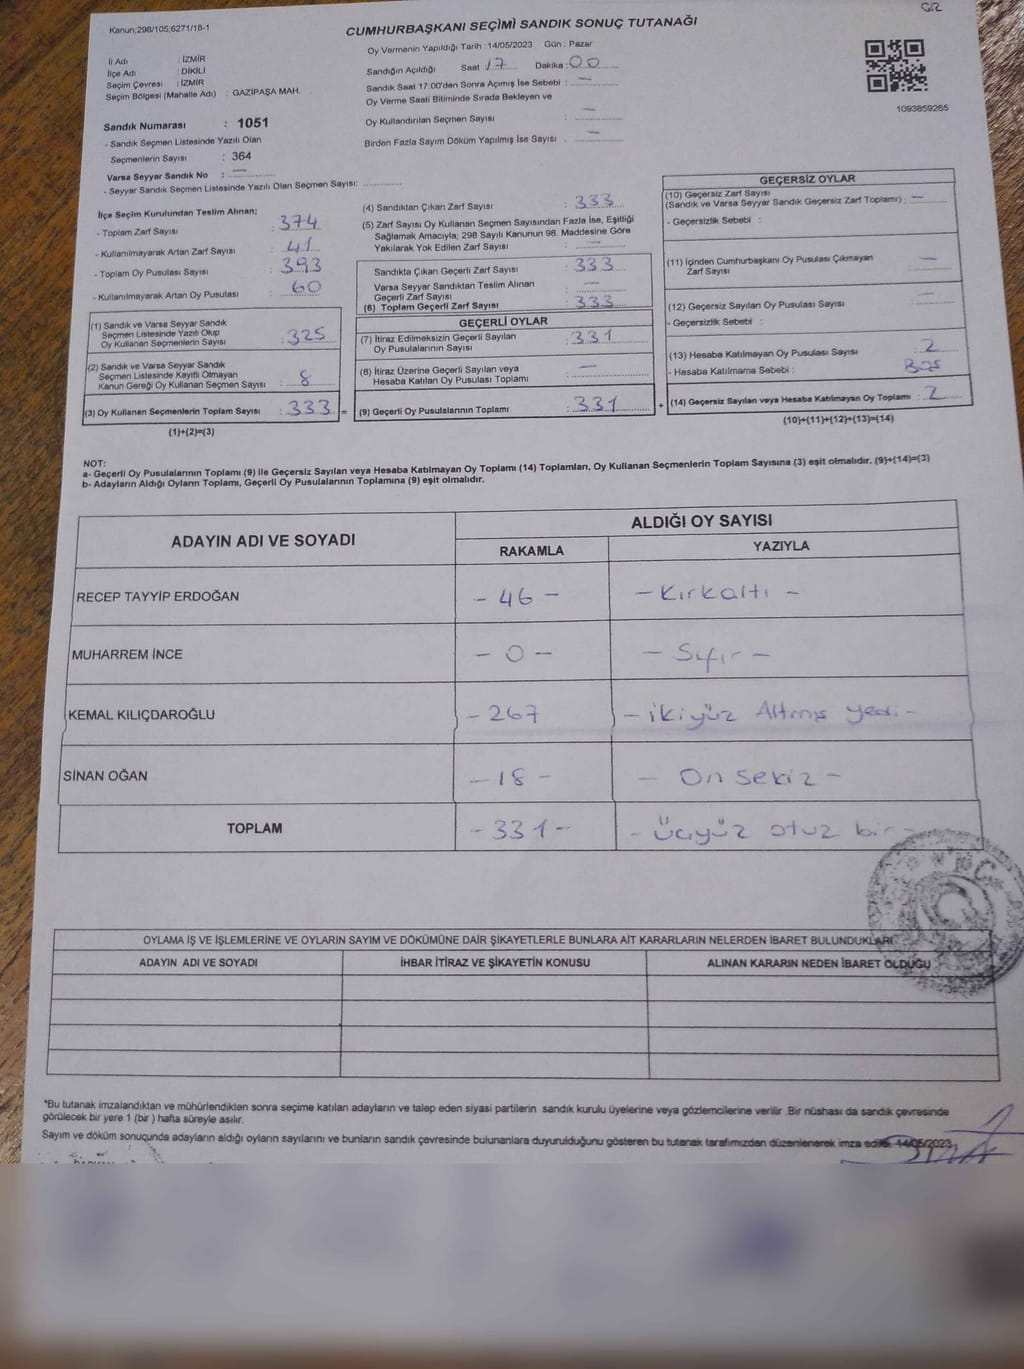 Kanun;298/105;6271/16-1
CUMHURBAŞKANI SEÇİMİ SANDIK SONUÇ TUTANAĞI
Oy Vermenin Yapıldığı Tarih :14/05/2023 Gün : Pazar
İl Adı : İZMİR
İlçe Adı : DİKİLİ
Seçim Çevresi : İZMİR
Seçim Bölgesi (Mahalle Adı) : GAZİPAŞA MAH.
Sandığın Açıldığı Saat :17 Dakika :00
Sandık Saat 17:00'den Sonra Açımış İse Sebebi : —
Oy Verme Saati Bitiminde Sırada Bekleyen ve
Oy Kullandırılan Seçmen Sayısı : —
Birden Fazla Sayım Döküm Yapılmış İse Sayısı : —
1093859265
Sandık Numarası : 1051
- Sandık Seçmen Listesinde Yazılı Olan
Seçmenlerin Sayısı : 364
Varsa Seyyar Sandık No : —
- Seyyar Sandık Seçmen Listesinde Yazılı Olan Seçmen Sayısı:
İlçe Seçim Kurulundan Teslim Alınan;
- Toplam Zarf Sayısı : 374
- Kullanılmayarak Artan Zarf Sayısı : 41
- Toplam Oy Pusulası Sayısı : 393
- Kullanılmayarak Artan Oy Pusulası : 60
(1) Sandık ve Varsa Seyyar Sandık
Seçmen Listesinde Yazılı Olup
Oy Kullanan Seçmenlerin Sayısı : 325
(2) Sandık ve Varsa Seyyar Sandık
Seçmen Listesinde Kayıtlı Olmayan
Kanun Gereği Oy Kullanan Seçmen Sayısı : 8
(3) Oy Kullanan Seçmenlerin Toplam Sayısı : 333 =
(1)+(2)=(3)
(4) Sandıktan Çıkan Zarf Sayısı : 333
(5) Zarf Sayısı Oy Kullanan Seçmen Sayısından Fazla İse, Eşitliği
Sağlamak Amacıyla; 298 Sayılı Kanunun 98. Maddesine Göre
Yakılarak Yok Edilen Zarf Sayısı : —
Sandıkta Çıkan Geçerli Zarf Sayısı : 333
Varsa Seyyar Sandıktan Teslim Alınan
Geçerli Zarf Sayısı : —
(6) Toplam Geçerli Zarf Sayısı : 333
GEÇERLİ OYLAR
(7) İtiraz Edilmeksizin Geçerli Sayılan
Oy Pusulalarının Sayısı : 331
(8) İtiraz Üzerine Geçerli Sayılan veya
Hesaba Katılan Oy Pusulası Toplamı : —
(9) Geçerli Oy Pusulalarının Toplamı : 331 +
GEÇERSİZ OYLAR
(10) Geçersiz Zarf Sayısı
(Sandık ve Varsa Seyyar Sandık Geçersiz Zarf Toplamı) : —
- Geçersizlik Sebebi :
(11) İçinden Cumhurbaşkanı Oy Pusulası Çıkmayan
Zarf Sayısı : —
(12) Geçersiz Sayılan Oy Pusulası Sayısı : —
- Geçersizlik Sebebi :
(13) Hesaba Katılmayan Oy Pusulası Sayısı : 2
- Hesaba Katılmama Sebebi :
(14) Geçersiz Sayılan veya Hesaba Katılmayan Oy Toplamı : 2
(10)+(11)+(12)+(13)=(14)
NOT:
a- Geçerli Oy Pusulalarının Toplamı (9) ile Geçersiz Sayılan veya Hesaba Katılmayan Oy Toplamı (14) Toplamları, Oy Kullanan Seçmenlerin Toplam Sayısına (3) eşit olmalıdır. (9)+(14)=(3)
b- Adayların Aldığı Oyların Toplamı, Geçerli Oy Pusulalarının Toplamına (9) eşit olmalıdır.
ADAYIN ADI VE SOYADI
ALDIĞI OY SAYISI
RAKAMLA YAZIYLA
RECEP TAYYİP ERDOĞAN - 46 - - Kırkaltı -
MUHARREM İNCE - 0 - - Sıfır -
KEMAL KILIÇDAROĞLU - 267 - ikiyüz Altmış yedi -
SİNAN OĞAN - 18 - - On sekiz -
TOPLAM - 331 - - Üçyüz otuz bir -
OYLAMA İŞ VE İŞLEMLERİNE VE OYLARIN SAYIM VE DÖKÜMÜNE DAİR ŞİKAYETLERLE BUNLARA AİT KARARLARIN NELERDEN İBARET BULUNDUKLARI
ADAYIN ADI VE SOYADI İHBAR İTİRAZ VE ŞİKAYETİN KONUSU ALINAN KARARIN NEDEN İBARET OLDUĞU
*Bu tutanak imzalandıktan ve mühürlendikten sonra seçime katılan adayların ve talep eden siyasi partilerin sandık kurulu üyelerine veya gözlemcilerine verilir .Bir nüshası da sandık çevresinde
görülecek bir yere 1 (bir ) hafta süreyle asılır.
Sayım ve döküm sonucunda adayların aldığı oyların sayılarını ve bunların sandık çevresinde bulunanlara duyurulduğunu gösteren bu tutanak tarafımızdan düzenlenerek imza edildi. 14/05/2023